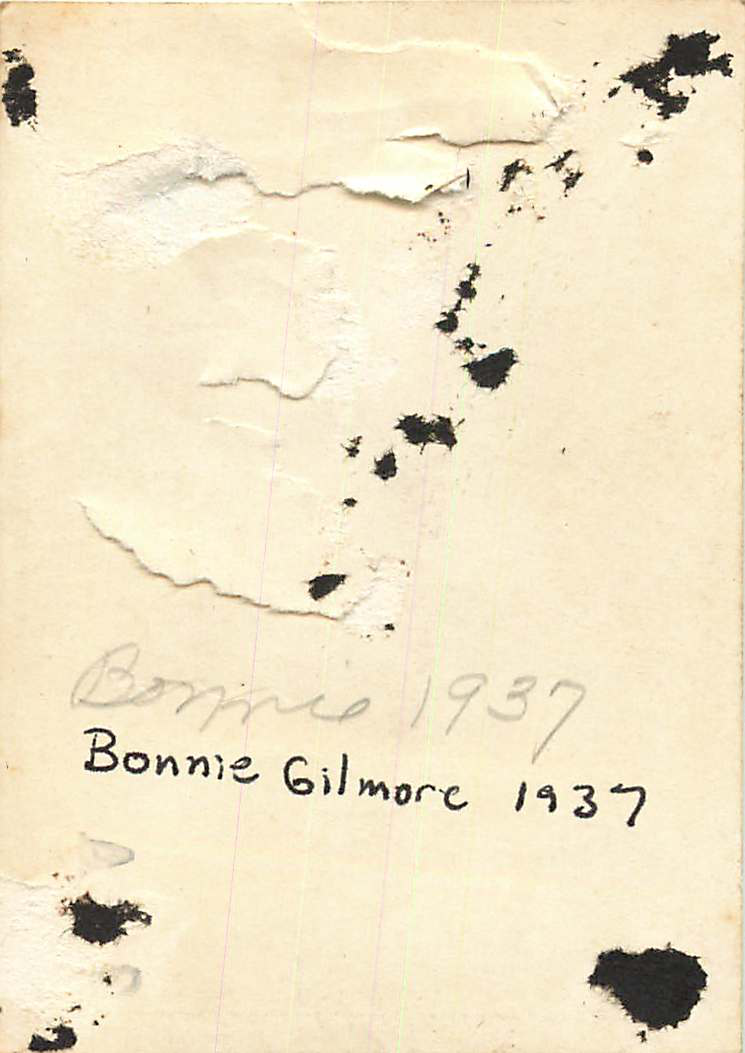 Bonnie 1937
Bonnie Gilmore 1937